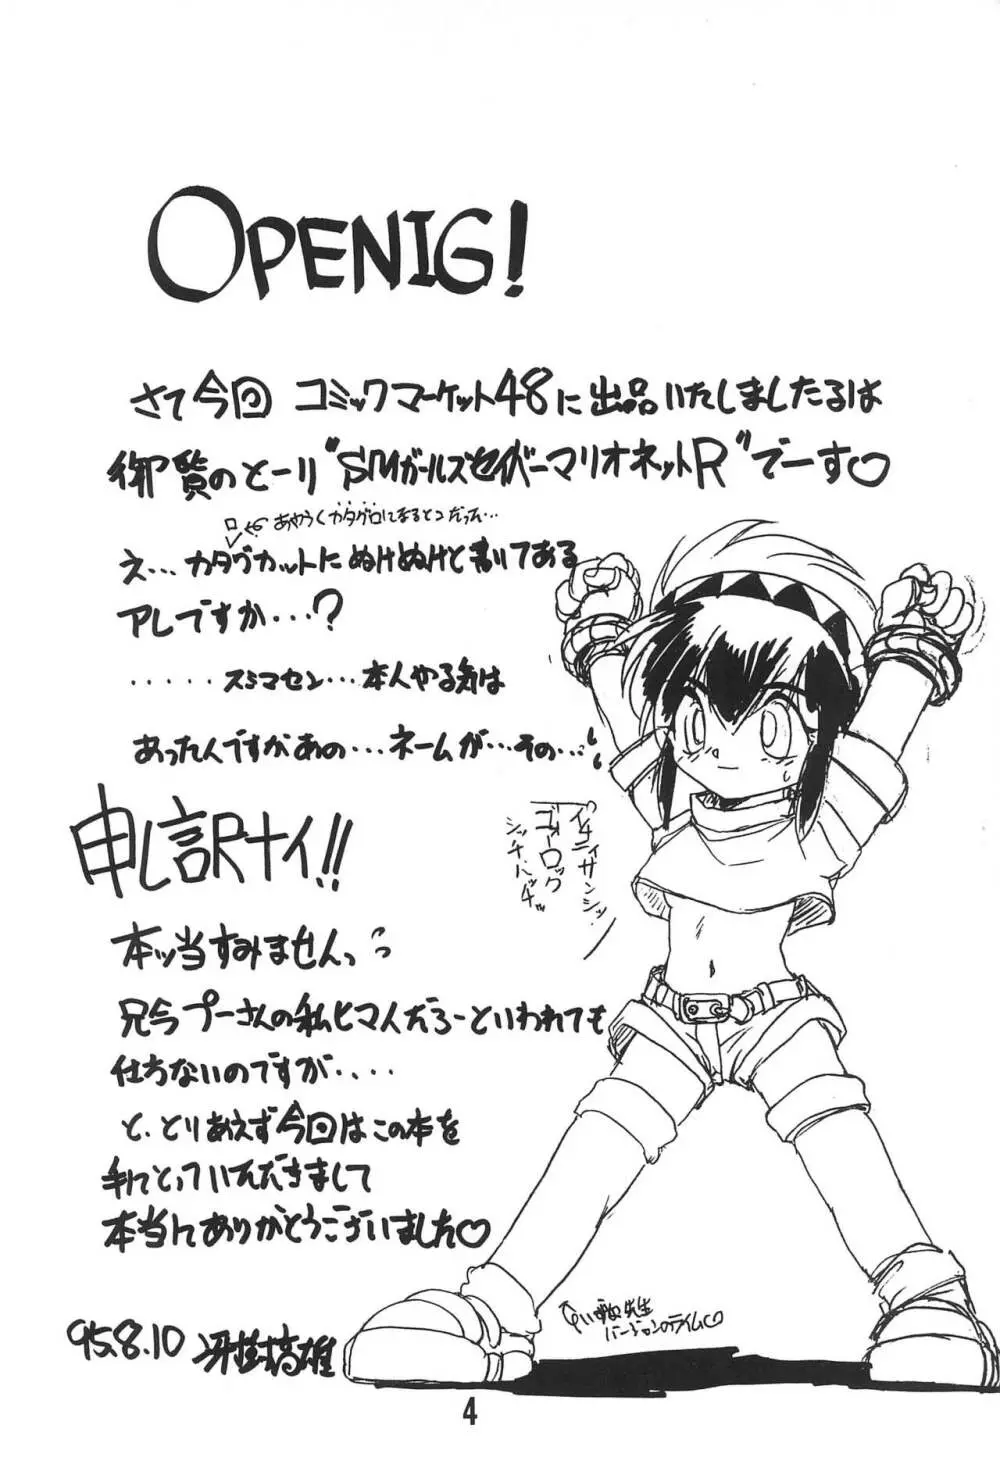 OPENIG!
さて今回 コミックマーケット48に出品いたしましたるは
御覧のとーり“SMガールズセイバーマリオネットR”でーす♡
ロ ← あやうくカタグロになるとこだった…
え…カタグカットにぬけぬけと書いてある
アレですか…?
.....スミマセン…本人やる気は
あったんですがあの…ネームが…その…
申し訳ナイ!!
本ッ当すみませんっ
兄今プーさんの私ヒマ人だろーといわれても
仕方ないのですが....
と、とりあえず今回はこの本を
手にとっていただきまして
本当にありがとうございました♡
95.8.10 冴樹高雄
イチニィサンシッ
ゴォーロック
シッチハッチッ
先生
バージョンのライム♡
4